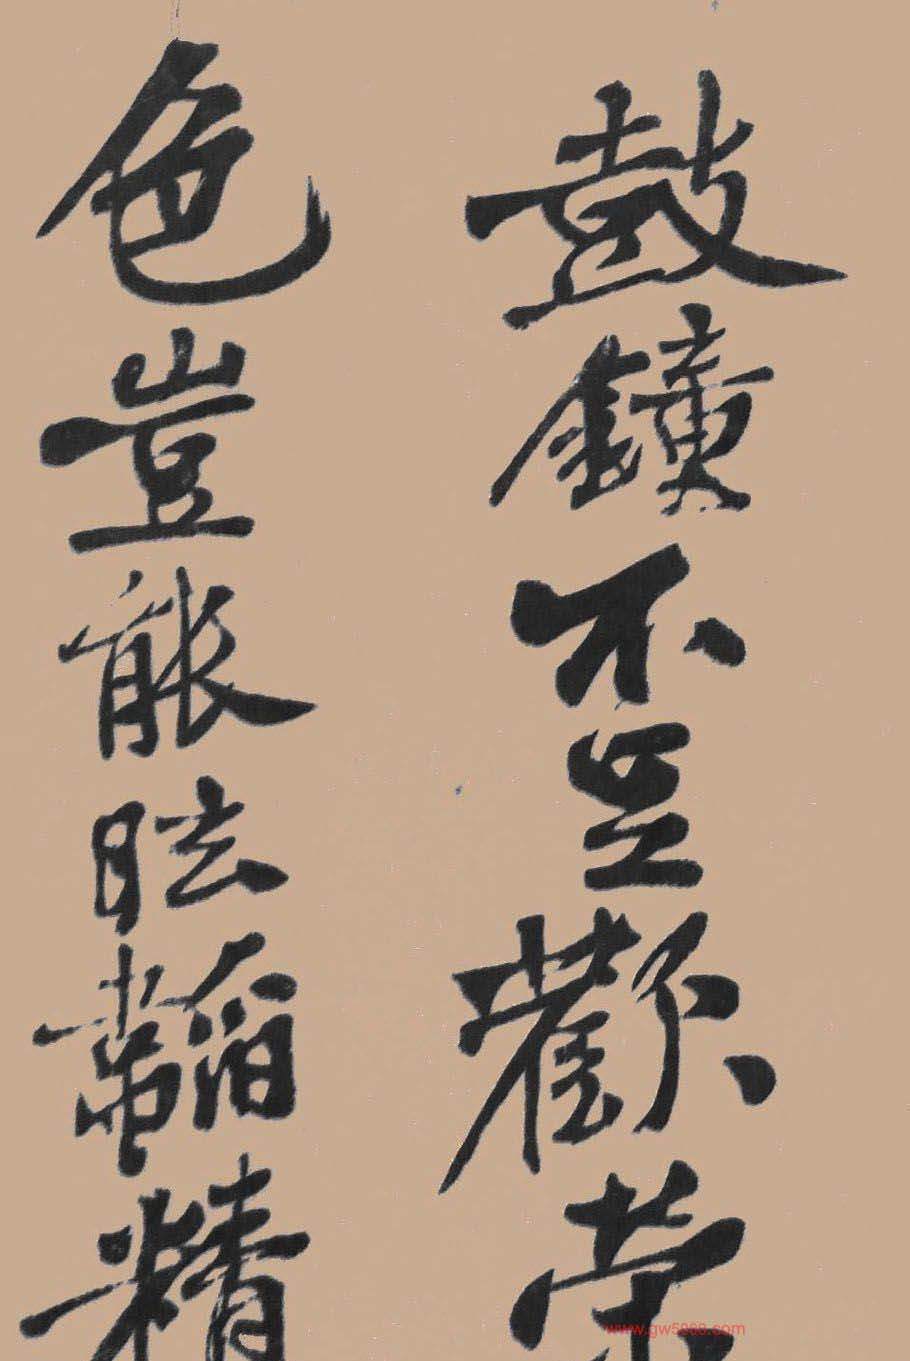 鼓鐘不足歡榮
色豈能眩韜精
www.gw5068.com